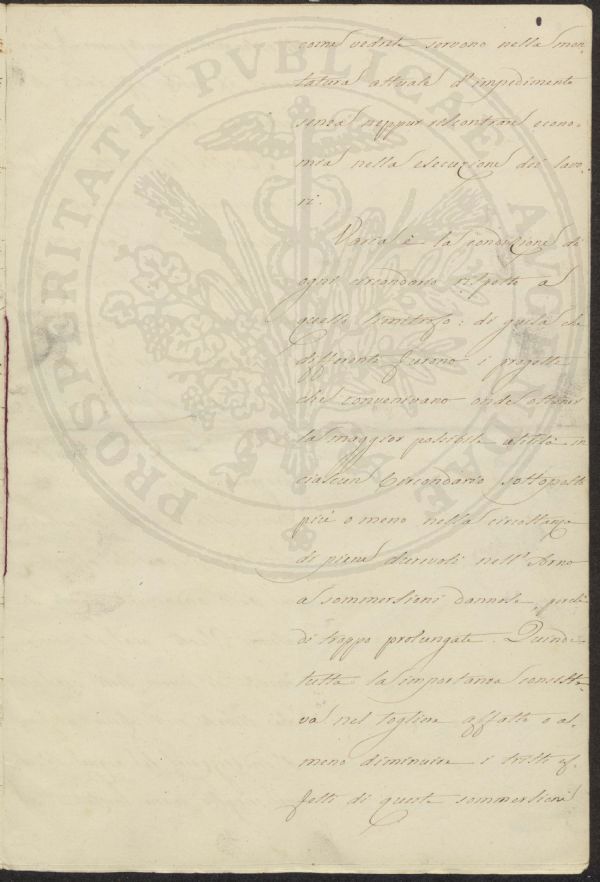 PROSPERITATI PVBLICAE AVGENDAE
come vedrete servono nella mon-
tatura attuale d'impedimento
senza neppur riscontrare econo-
mia nella esecuzione dei lavo-
ri.
Varia è la condizione di
ogni circondario rispetto a
quello limitrofo; di guisa che
differenti furono i progetti
che convenivano onde ottener
la maggior possibile utilità in
ciascun Circondario sottoposto
più o meno nella circostanza
di piene durevoli nell'Arno
a sommersioni dannose, perchè
di troppo prolungate. Quindi
tutta la importanza consiste-
va nel togliere affatto o al-
meno diminuire i tristi ef-
fetti di queste sommersioni